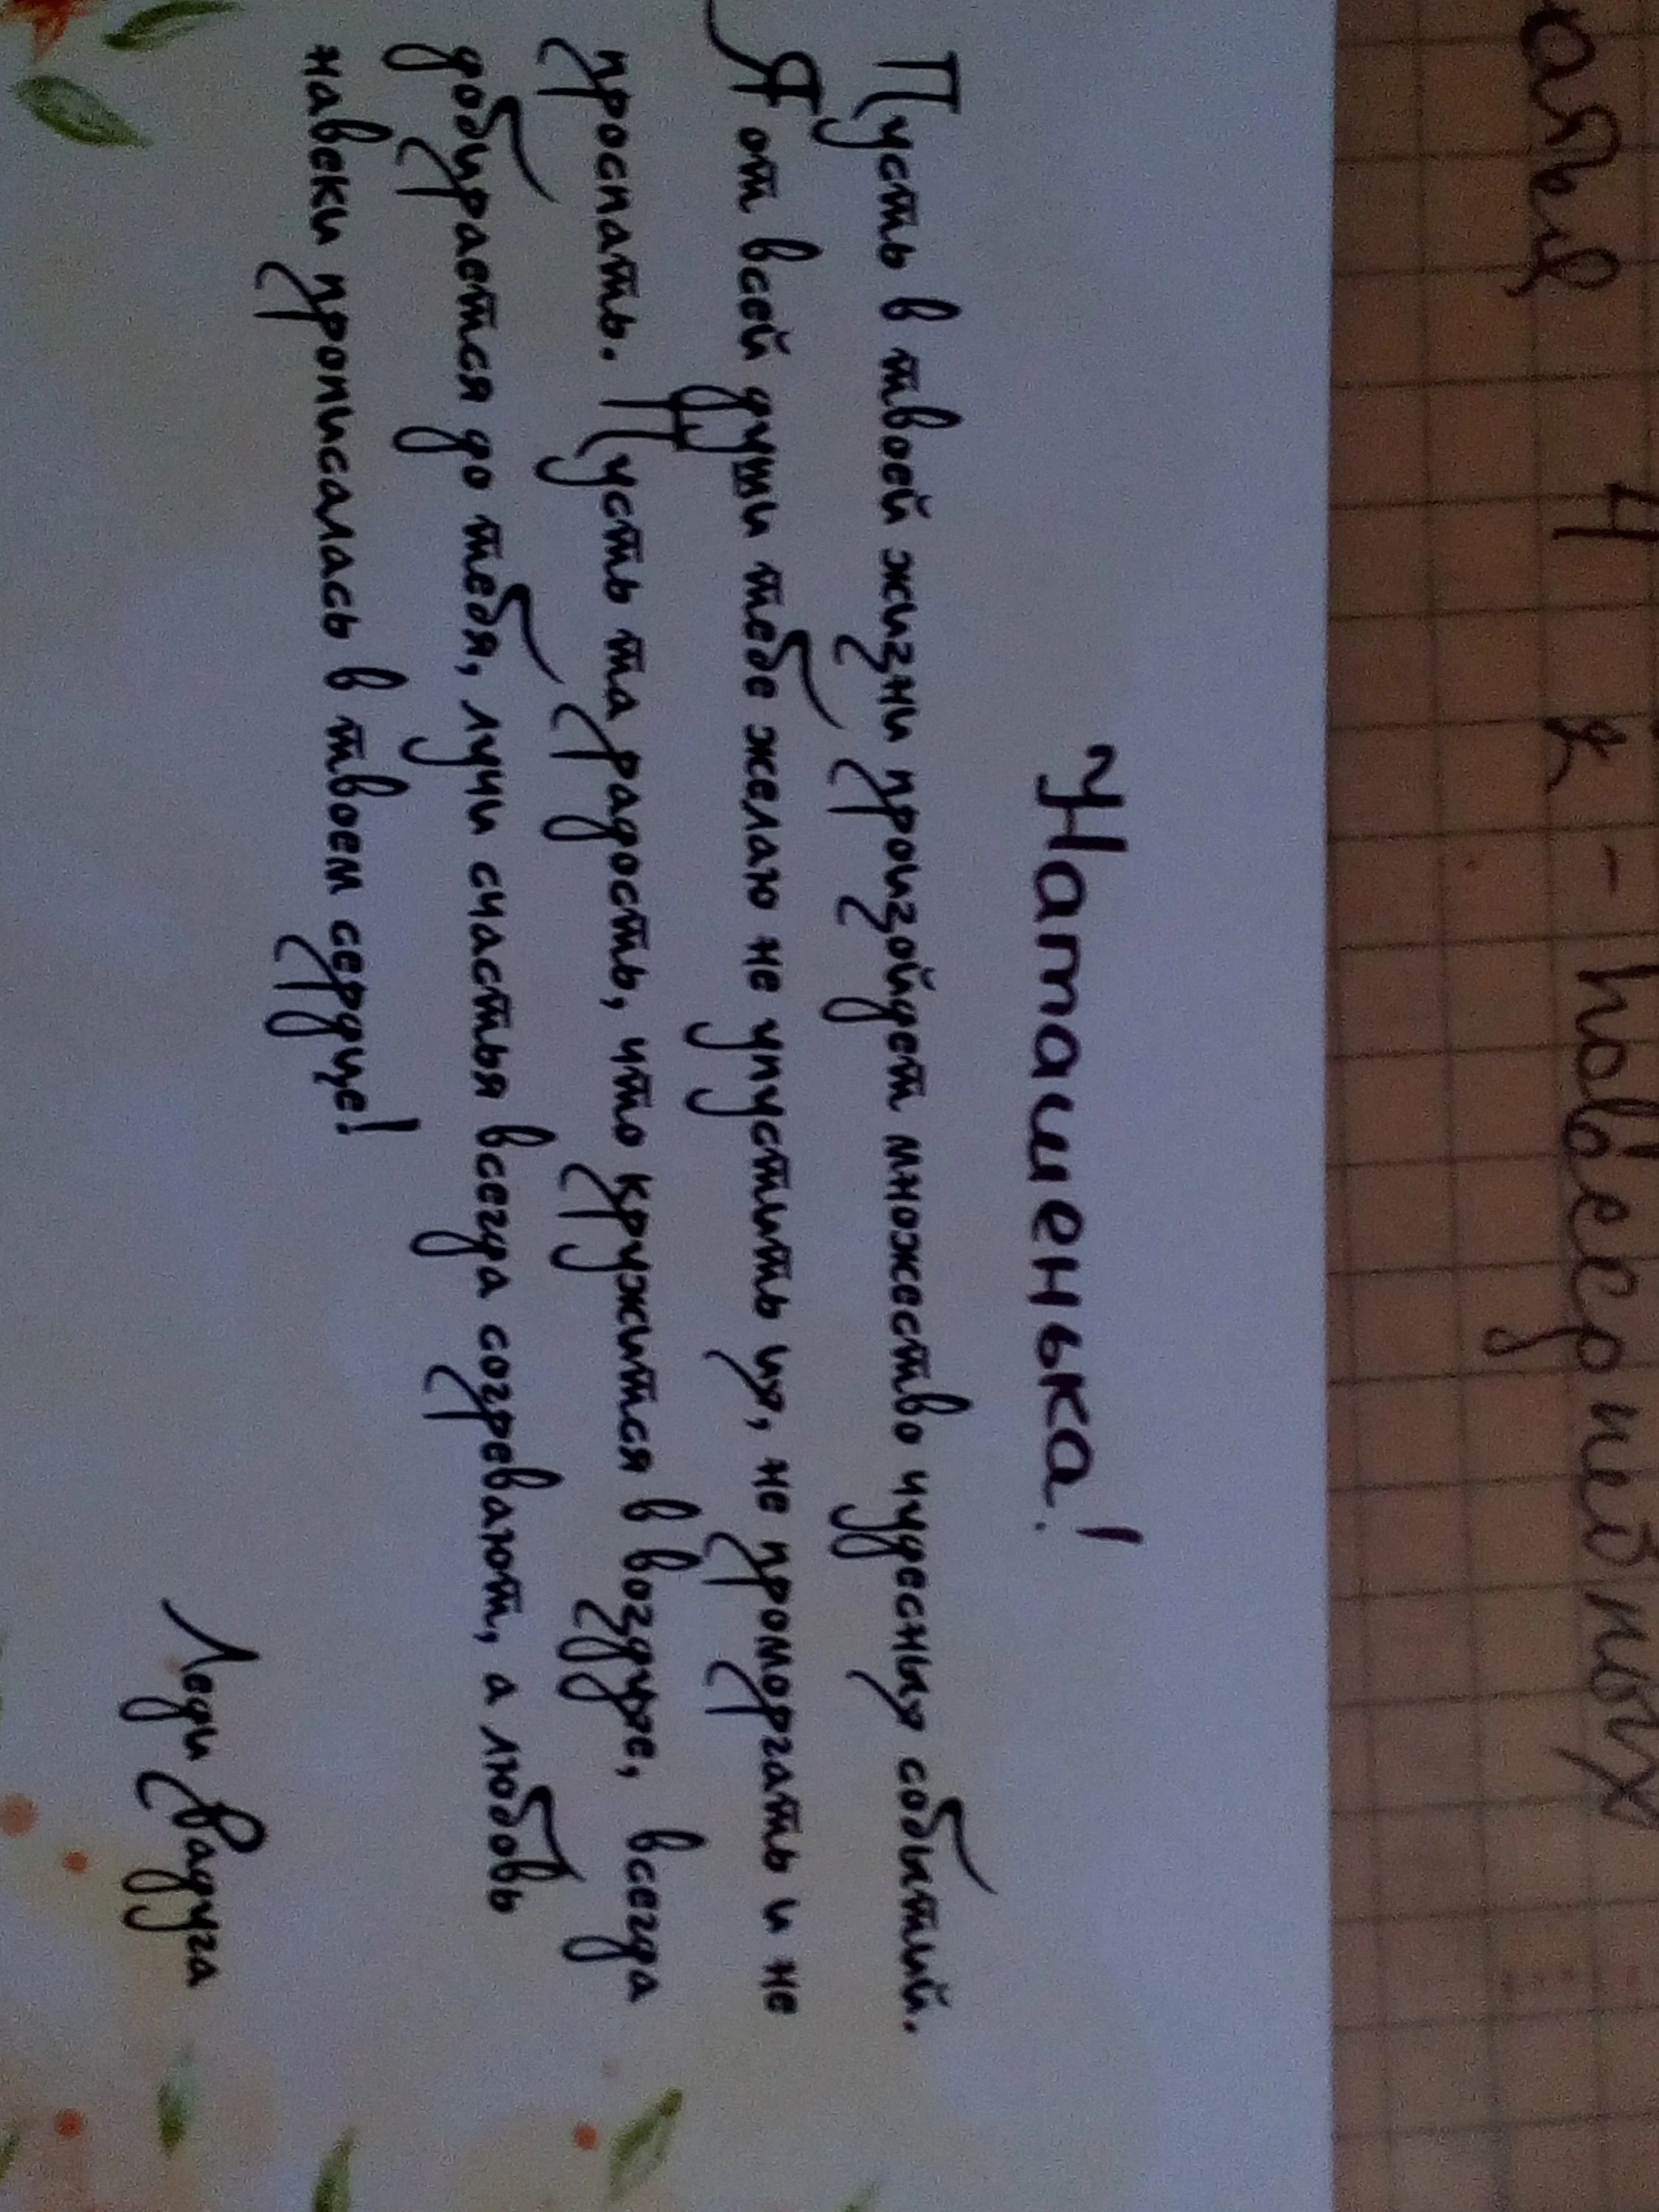 4 х - новседневных
Наташенька!
Пусть в твоей жизни произойдет множество чудесных событий.
Я от всей души тебе желаю не упустить их, не проморгать и не
проспать. Пусть та радость, что кружится в воздухе, всегда
добирается до тебя, лучи счастья всегда согревают, а любовь
навеки прописалась в твоем сердце!
Леди Радуга